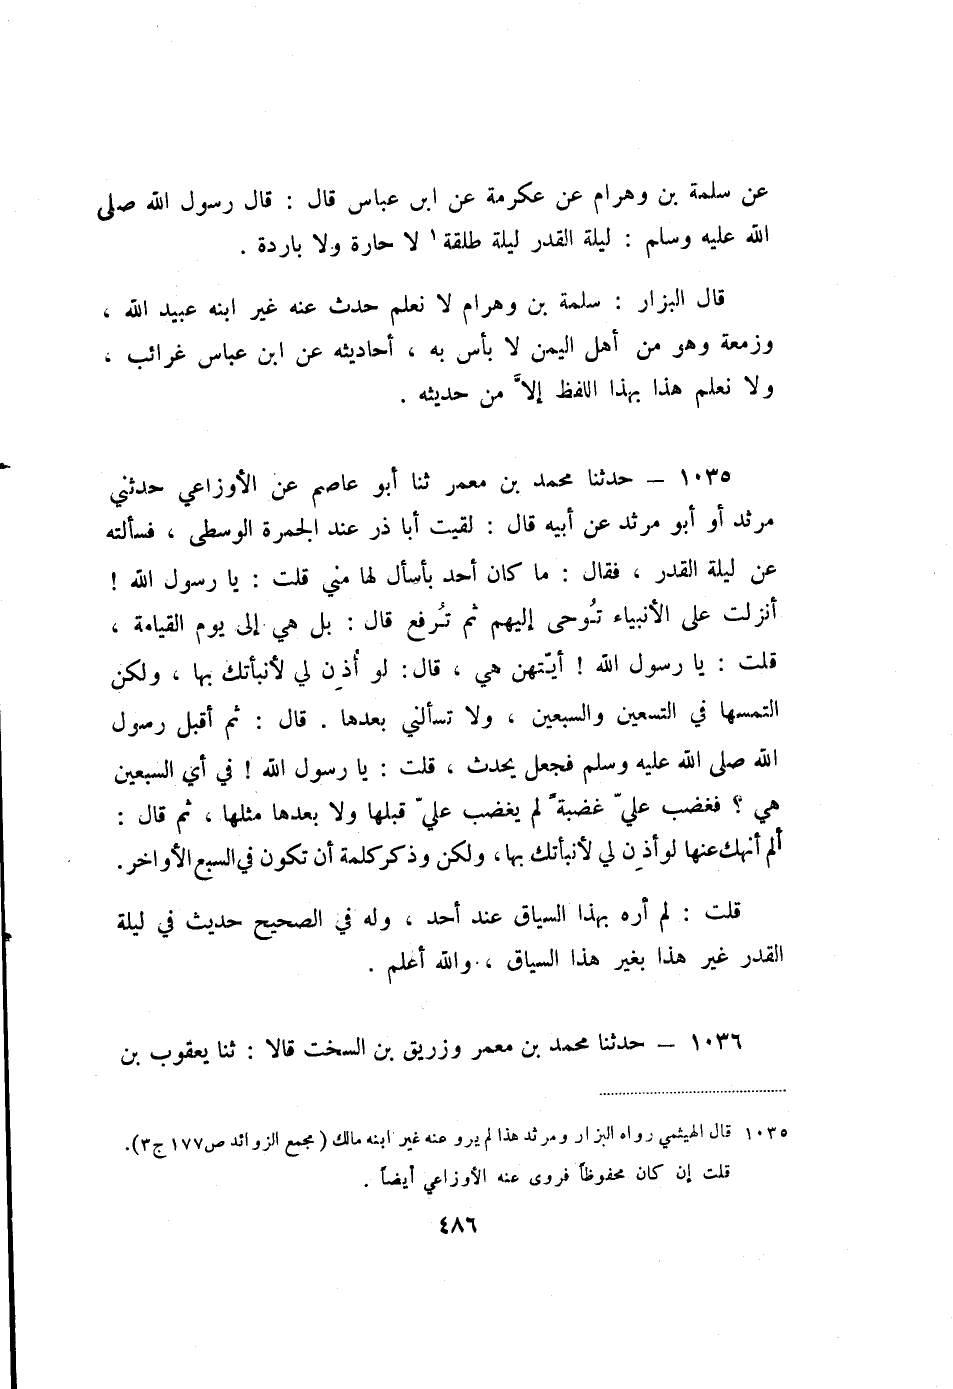 عن سلمة بن وهرام عن عكرمة عن ابن عباس قال : قال رسول الله صلى
الله عليه وسلم : ليلة القدر ليلة طلقة١ لا حارة ولا باردة .
قال البزار : سلمة بن وهرام لا نعلم حدث عنه غير ابنه عبيد الله ،
وزمعة وهو من أهل اليمن لا بأس به ، أحاديثه عن ابن عباس غرائب ،
ولا نعلم هذا بهذا اللفظ إلاَّ من حديثه .
١٠٣٥ – حدثنا محمد بن معمر ثنا أبو عاصم عن الأوزاعي حدثني
مرثد أو أبو مرثد عن أبيه قال : لقيت أبا ذر عند الجمرة الوسطى ، فسألته
عن ليلة القدر ، فقال : ما كان أحد بأسأل لها مني قلت : يا رسول الله !
أنزلت على الأنبياء تُوحى إليهم ثم تُرفع قال : بل هي إلى يوم القيامة ،
قلت : يا رسول الله ! أيّتهن هي ، قال : لو أُذِن لي لأنبأتك بها ، ولكن
التمسها في التسعين والسبعين ، ولا تسألني بعدها . قال : ثم أقبل رسول
الله صلى الله عليه وسلم فجعل يحدث ، قلت : يا رسول الله ! في أي السبعين
هي ؟ فغضب عليّ غضبةً لم يغضب عليّ قبلها ولا بعدها مثلها ، ثم قال :
ألم أنهك عنها لو أذِن لي لأنبأتك بها، ولكن وذكر كلمة أن تكون في السبع الأواخر.
قلت : لم أره بهذا السياق عند أحد ، وله في الصحيح حديث في ليلة
القدر غير هذا بغير هذا السياق ، والله أعلم .
١٠٣٦ – حدثنا محمد بن معمر وزريق بن السخت قالا : ثنا يعقوب بن
١٠٣٥ قال الهيثمي رواه البزار ومرثد هذا لم يرو عنه غير ابنه مالك ( مجمع الزوائد ص١٧٧ ج٣).
قلت إن كان محفوظاً فروى عنه الأوزاعي أيضاً .
٤٨٦